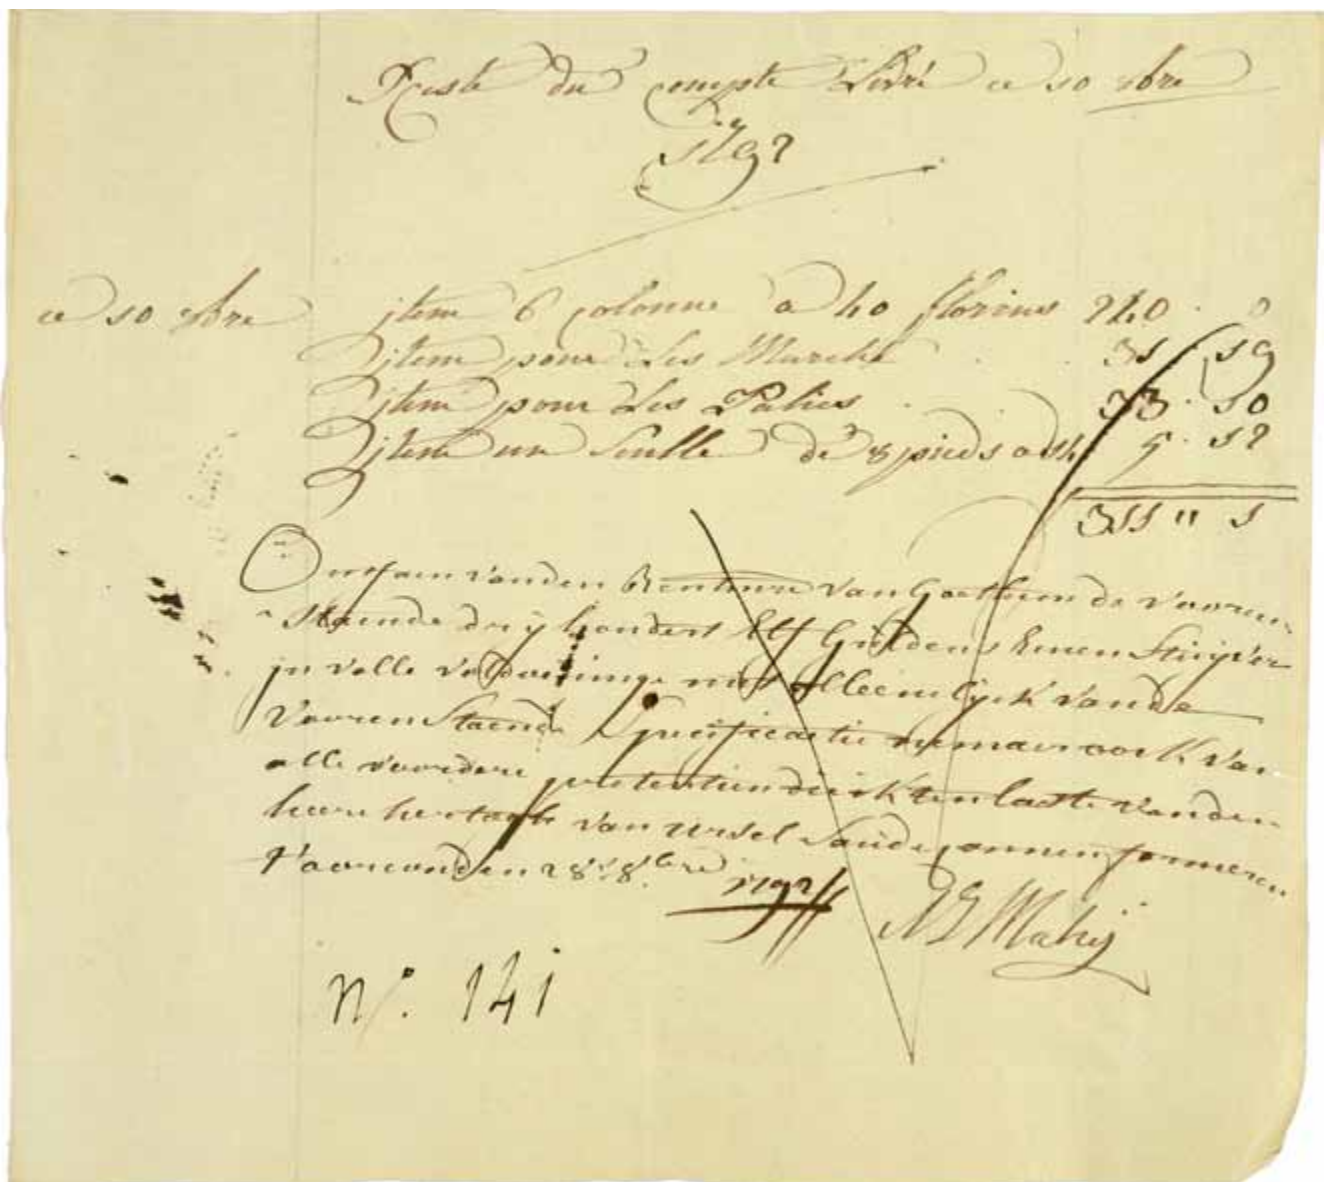 Reste du compte Livré ce 10 8bre
1792
ce 10 8bre item 6 colonne a 40 florins 240 . 0
item pour Les Marche . 31 . 19
item pour Les Palies . 33 . 10
item un Seulle de 8 pieds a 14 5 . 12
311 " 1
Ontfaen vanden Rentmre van de vooren
staende dry hondert Elf Guldens Eenen Stuyver
in volle voldoeninge niet alleenelyck vande
voorenstaende Specificatie nemaer oock van
alle voordere pretentien die ick ten laste vanden
heere hertoghe van ursel Saude connen formeren
28 8bre 1792
Mahy
N°. 141